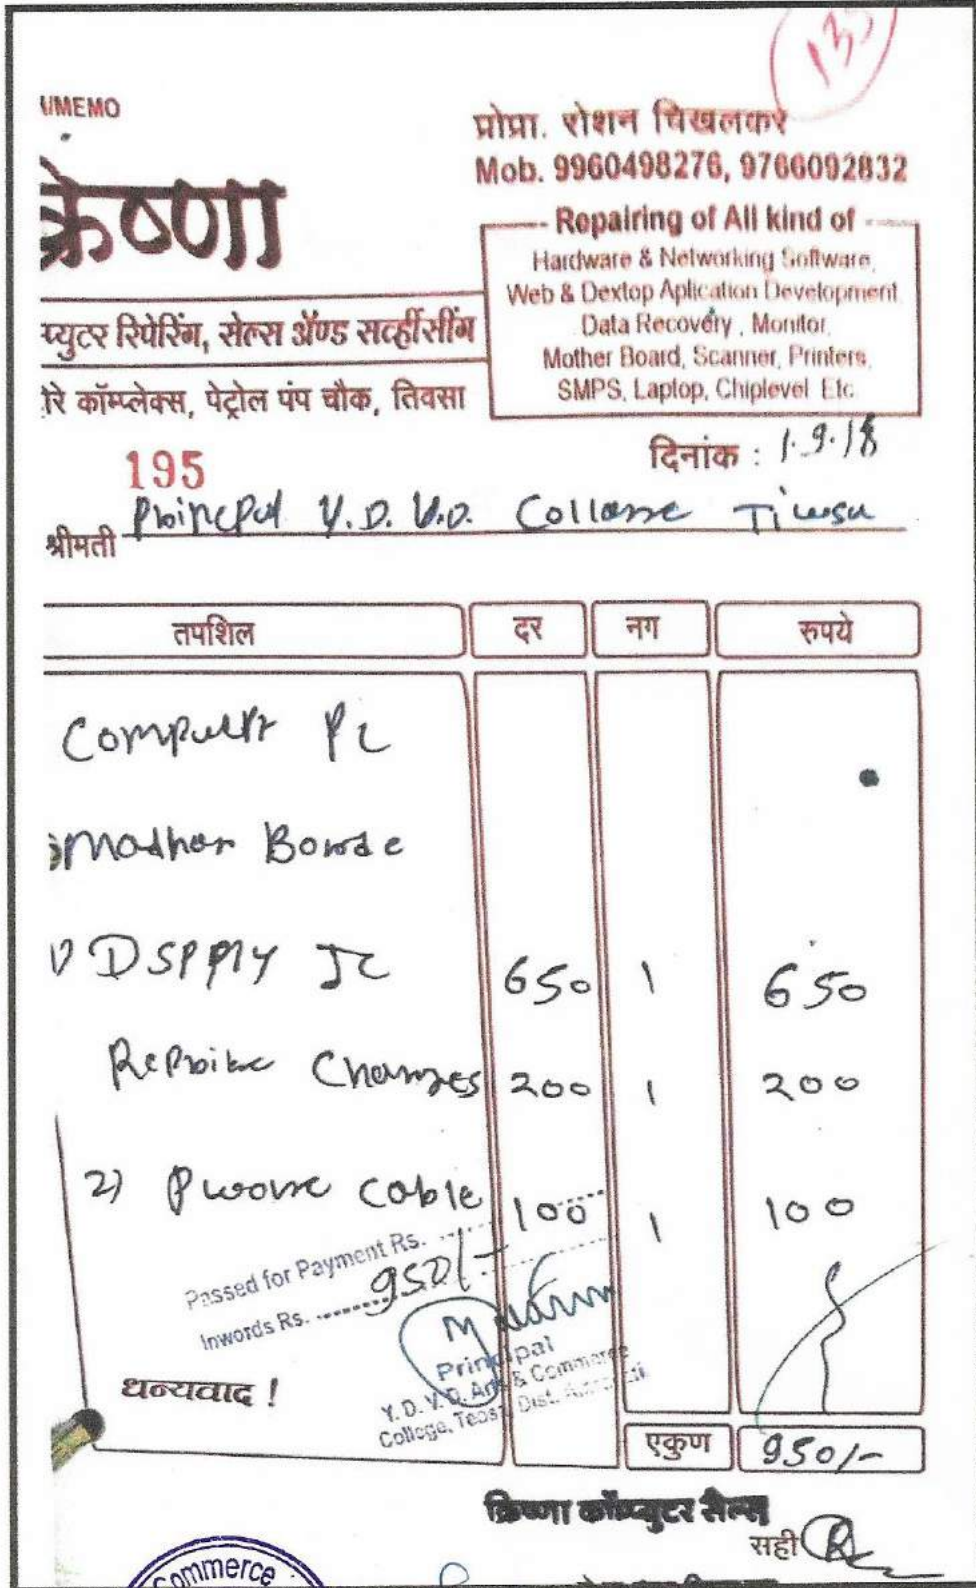 135
UMEMO
प्रोप्रा. रोशन चिखलकर
Mob. 9960498276, 9766092832
क्रिष्णा
Repairing of All kind of
Hardware & Networking Software,
Web & Dextop Aplication Development
Data Recovery, Monitor,
Mother Board, Scanner, Printers,
SMPS, Laptop, Chiplevel Etc.
प्युटर रिपेरिंग, सेल्स ॲण्ड सर्व्हीसींग
रे कॉम्प्लेक्स, पेट्रोल पंप चौक, तिवसा
195
दिनांक : 1.9.18
श्रीमती Y.D.V.D.
तपशिल दर नग रुपये
PC
650 1 650
200 1 200
2) cable 100 1 100
Passed for Payment Rs.
Inwords Rs. 950/-
Principal
Y. D. V. D. Arts & Commerce
College, Dist.
धन्यवाद !
एकुण 950/-
क्रिष्णा कॉम्प्युटर सेल्स
सही
Commerce